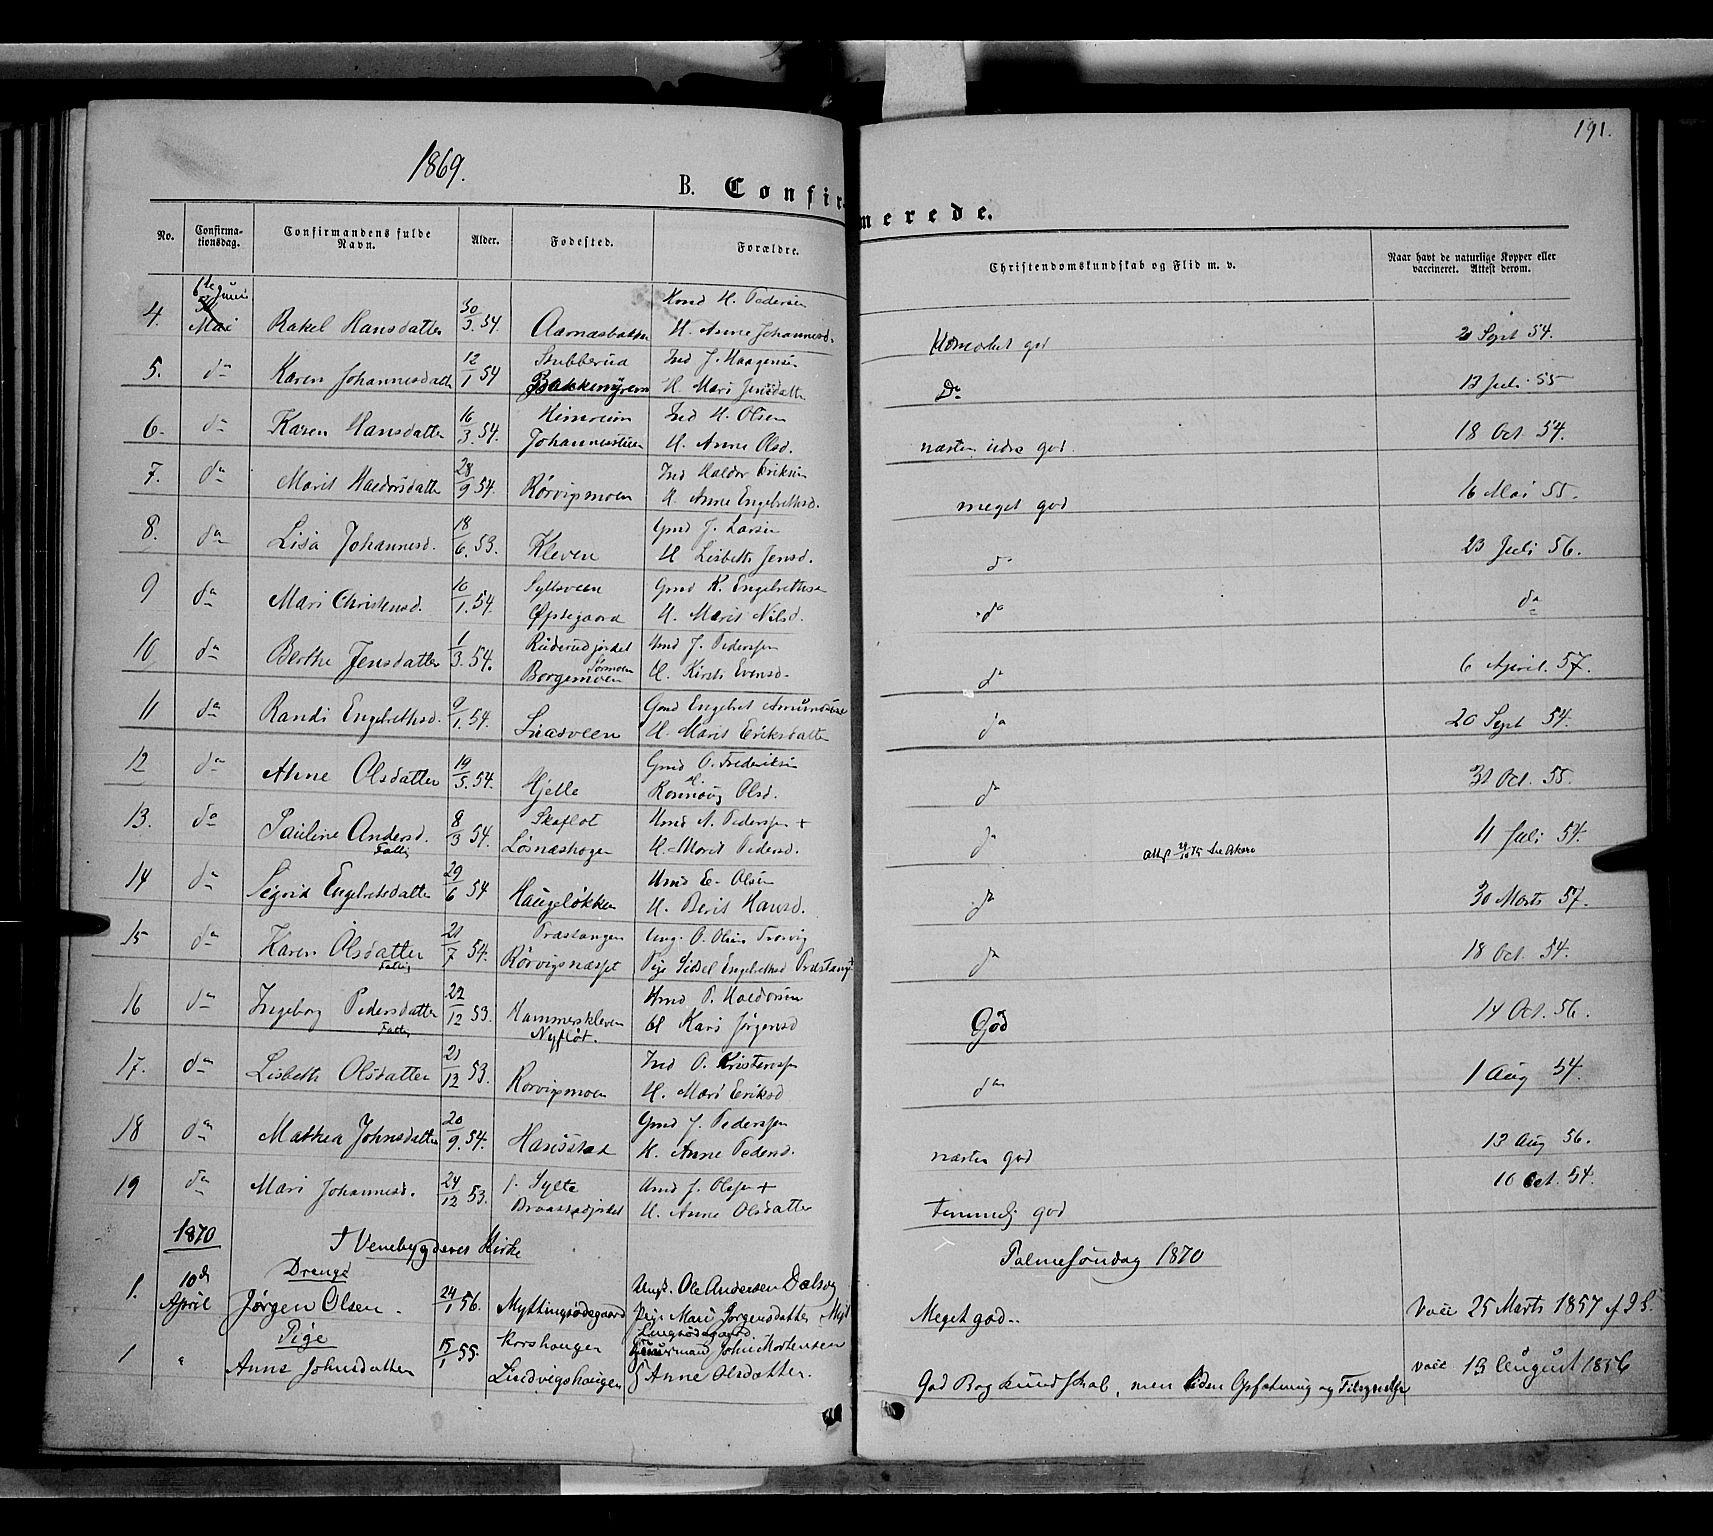 191.
1869.
B. Confirmerede.
No. Confirmationsdag. Confirmandens fulde Navn. Alder. Fødested. Forældre. Christendomskundskab og Flid m. v. Naar havt de naturlige Kopper eller vaccineret. Attest derom.
6te Juni
Mai
4. Rakel Hansdatter 30/3 54 Aarnæsbakken H. Pedersen H. Anne Johannesd. Udmærket god 2 Sept 54.
5. do Karen Johannesdatter 12/1 54 Stubberud Bakkemyren Ind J. Haagensen H. Mari Jensdatter Do 13 Juli 55
6. do Karen Hansdatter 16/3 54. Johannesstuen Ind H. Olsen H. Anne Olsd. næsten udm god. 18 Oct 54.
7. do Marit Haldorsdatter 28/9 54. Rørvigmoen Ind Haldor Eriksen H. Anne Engebrethsd. meget god 16 Mai 55.
8. do Lisa Johannesd. 18/6. 53. Kleven Gmd J. Larsen H. Lisbeth Jensd. do 23 Juli 56.
9 do Mari Christensd. 10/1. 54. Syltsveen Øvstegaard Gmd K. Engebrethsen H. Marit Nilsd. do do
10 do Berthe Jensdatter 1/3. 54. Ruderudjordet Sørmoen Borgemoen Hmd J. Pederssen H. Kirsti Evensd. do 6 April. 57.
11 do Randi Engebrethsd. 9/1. 54. Gmd Engebret Amundsen H. Marit Eriksdatter do 20 Sept 54.
12 do Anne Olsdatter 19/5. 54. Hjelle Gmd O. Frederiksen H Rønnoug Olsd. do 31 Oct. 55.
13. do Pauline Andersd. Fattig 8/3 54. Skaflot Løsnæshogen Hmd A. Pederssen + H. Marit Pedersd. do 11 Juli 54.
14 do Sigrid Engebretsdatter 29/6 54 Haugeløkken Hmd E. Olsen H. Berit Hansd. do 30 Marts 57.
15 do Karen Olsdatter Fattig 21/7 54. Præstangen Rørvigsnæsset Ung. O. Olsen Pige Sidsel Engebrethsd Præstang do 18 Oct. 54.
16 do Ingeborg Pedersdatter Fattig 22/12 53. Hammerskleven Nyfløt. Hmd P. Haldorsen H Kari Jørgensd God 14 Oct. 56.
17. do Lisbeth Olsdatter 21/12 53. Rørvigmoen Ind O. Kristenssen H. Mari Eriksd do 1 Aug 54.
18 do Mathea Johnsdatter 20/9. 54. Gmd J. Pederssen H. Anne Pedersd. næsten god 12 Aug 56.
19 do Mari Johannesd. 24/12 53. Sylte Hmd J. Olssen + H. Anne Olsdatter Temmelig god 16 Oct. 54.
1870 I Venebygdens Kirke Palmesøndag 1870
Drenge
1. 10de April Jørgen Olsen. 24/1 56. Myttingsødegaard Ungk. Ole Andersen Dalseg Pige Mari Jørgensdatter Myttingsødegaard Meget god. Vacc 25 Marts 1857
Pige
1 " Anne Johnsdatter 15/1 55. Korshaugen Lindvigshaugen John Mortensen Anne Olsdatter. God Bogkundskab, men uden Opfatning og Tilegnelse vacc 13 August 1856